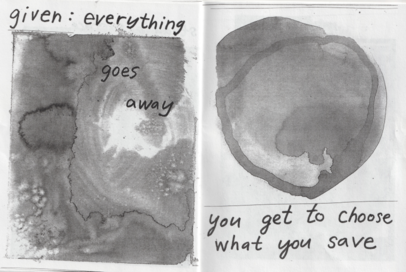 given: everything
goes
away
you get to choose
what you save